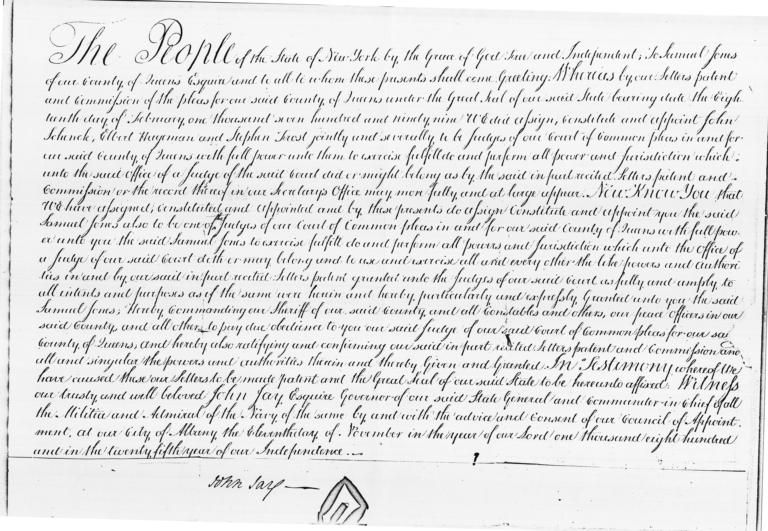 The People of the State of New York by the Grace of God Free and Independent; To Samuel Jones
of our County of Queens Esquire and to all to whom these presents shall come Greeting. Whereas by our Letters patent
and Commission of the pleas for our said County of Queens under the Great Seal of our said State bearing date the Eigh
teenth day of February one thousand seven hundred and ninety nine We did assign, constitute and appoint John
Schenck, Elbert Hageman and Stephen Frost jointly and severally to be Judges of our Court of Common pleas in and for
our said County of Queens with full power unto them to exercise fulfill do and perform all power and Jurisdiction which
unto the said Office of a Judge of the said Court did or might belong as by the said in part recited Letters patent and
Commission or the record thereof in our Secretary's Office may more fully and at large appear. Now Know You that
We have assigned, constituted and appointed and by these presents do assign Constitute and appoint you the said
Samuel Jones also to be one of Judges of our Court of Common pleas in and for our said County of Queens with full pow
er unto you the said Samuel Jones to exercise fulfill do and perform all powers and Jurisdiction which unto the office of
a Judge of our said Court doth or may belong and to use and exercise all and every other the like powers and Authori
ties in and by our said in part recited Letters patent granted unto the Judges of our said Court as fully and amply, to
all intents and purposes as if the same were herein and hereby, particularly and expressly, Granted unto you the said
Samuel Jones; Hereby Commanding our Sheriff of our said County and all Constables and others, our peace officers in our
said County, and all others to pay due obedience to you our said Judge of our said Court of Common pleas for our said
County of Queens, And hereby also ratifying and confirming our said in part recited Letters patent and Commission and
all and singular the powers and authorities therein and thereby Given and Granted. In Testimony whereof We
have caused these our Letters to be made patent and the Great Seal of our said State to be hereunto affixed. Witness
our trusty and well beloved John Jay Esquire Governor of our said State General and Commander in Chief of all
the Militia and Admiral of the Navy of the same by and with the advice and Consent of our Council of Appoint
ment, at our City of Albany the Eleventh day of November in the year of our Lord one thousand eight hundred
and in the twenty fifth year of our Independence.
John Jay